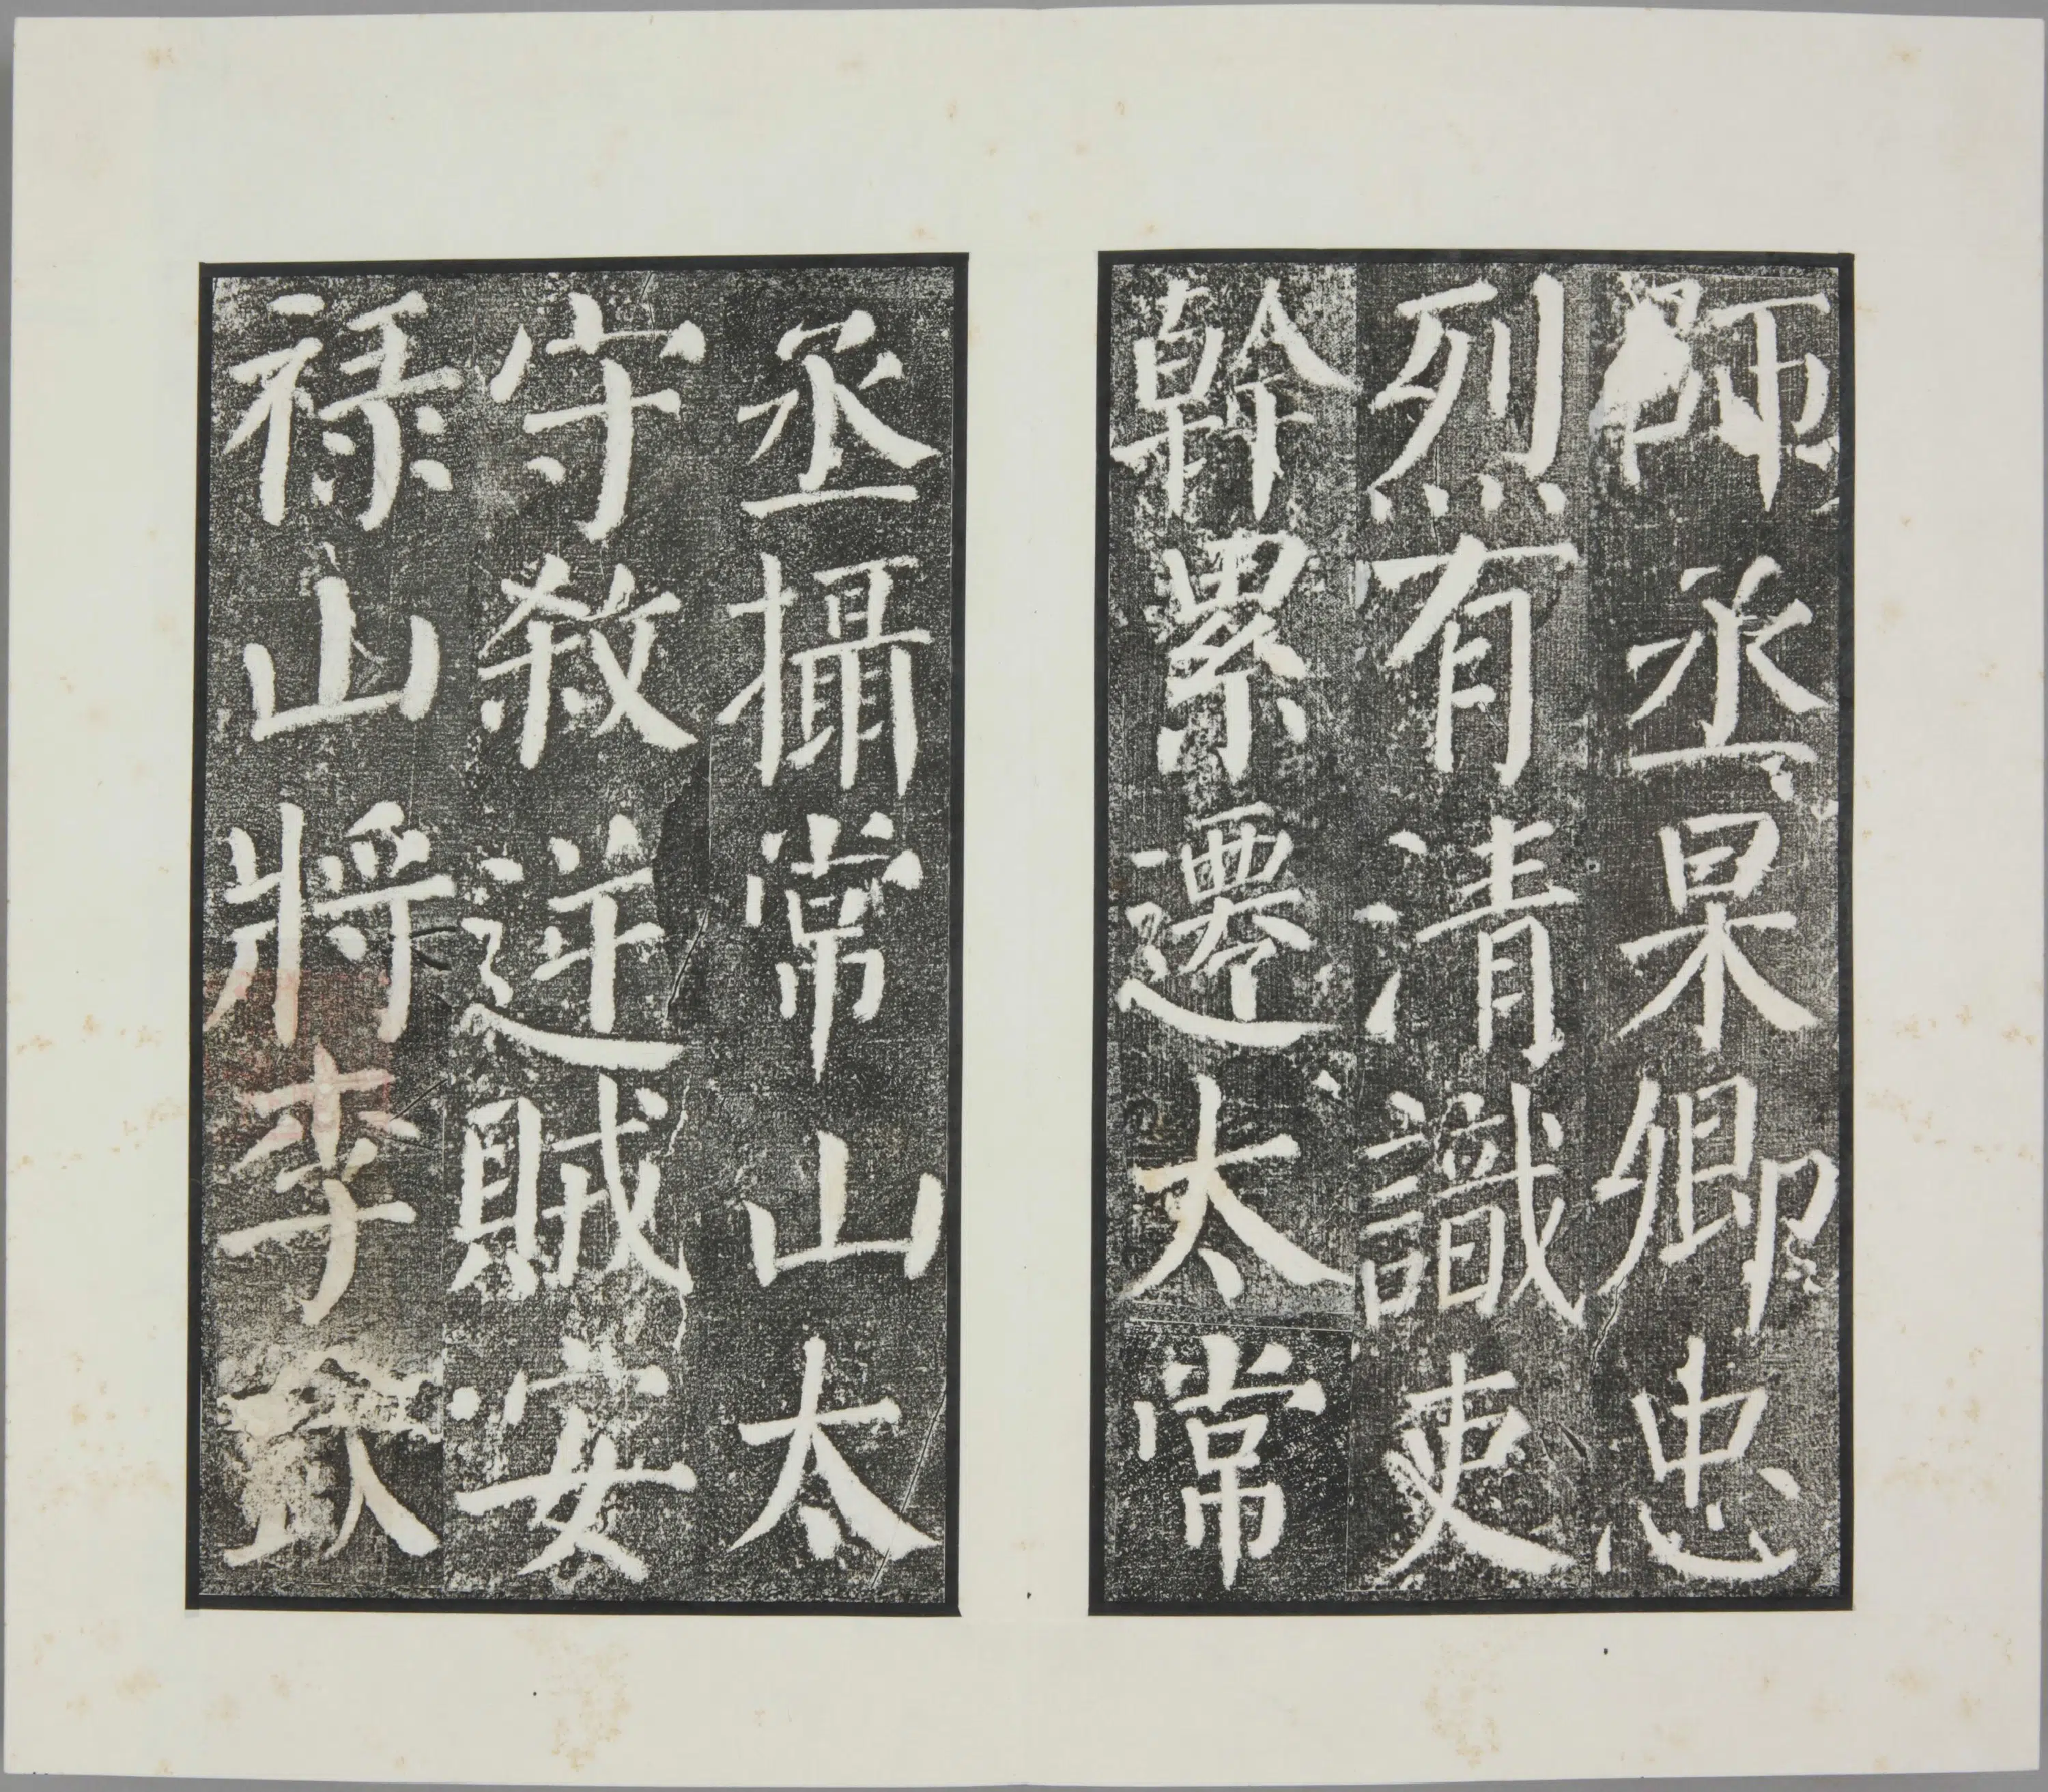 師丞杲卿忠
烈有清識吏
幹累遷太常
丞攝常山太
守殺逆賊安
禄山將李欽